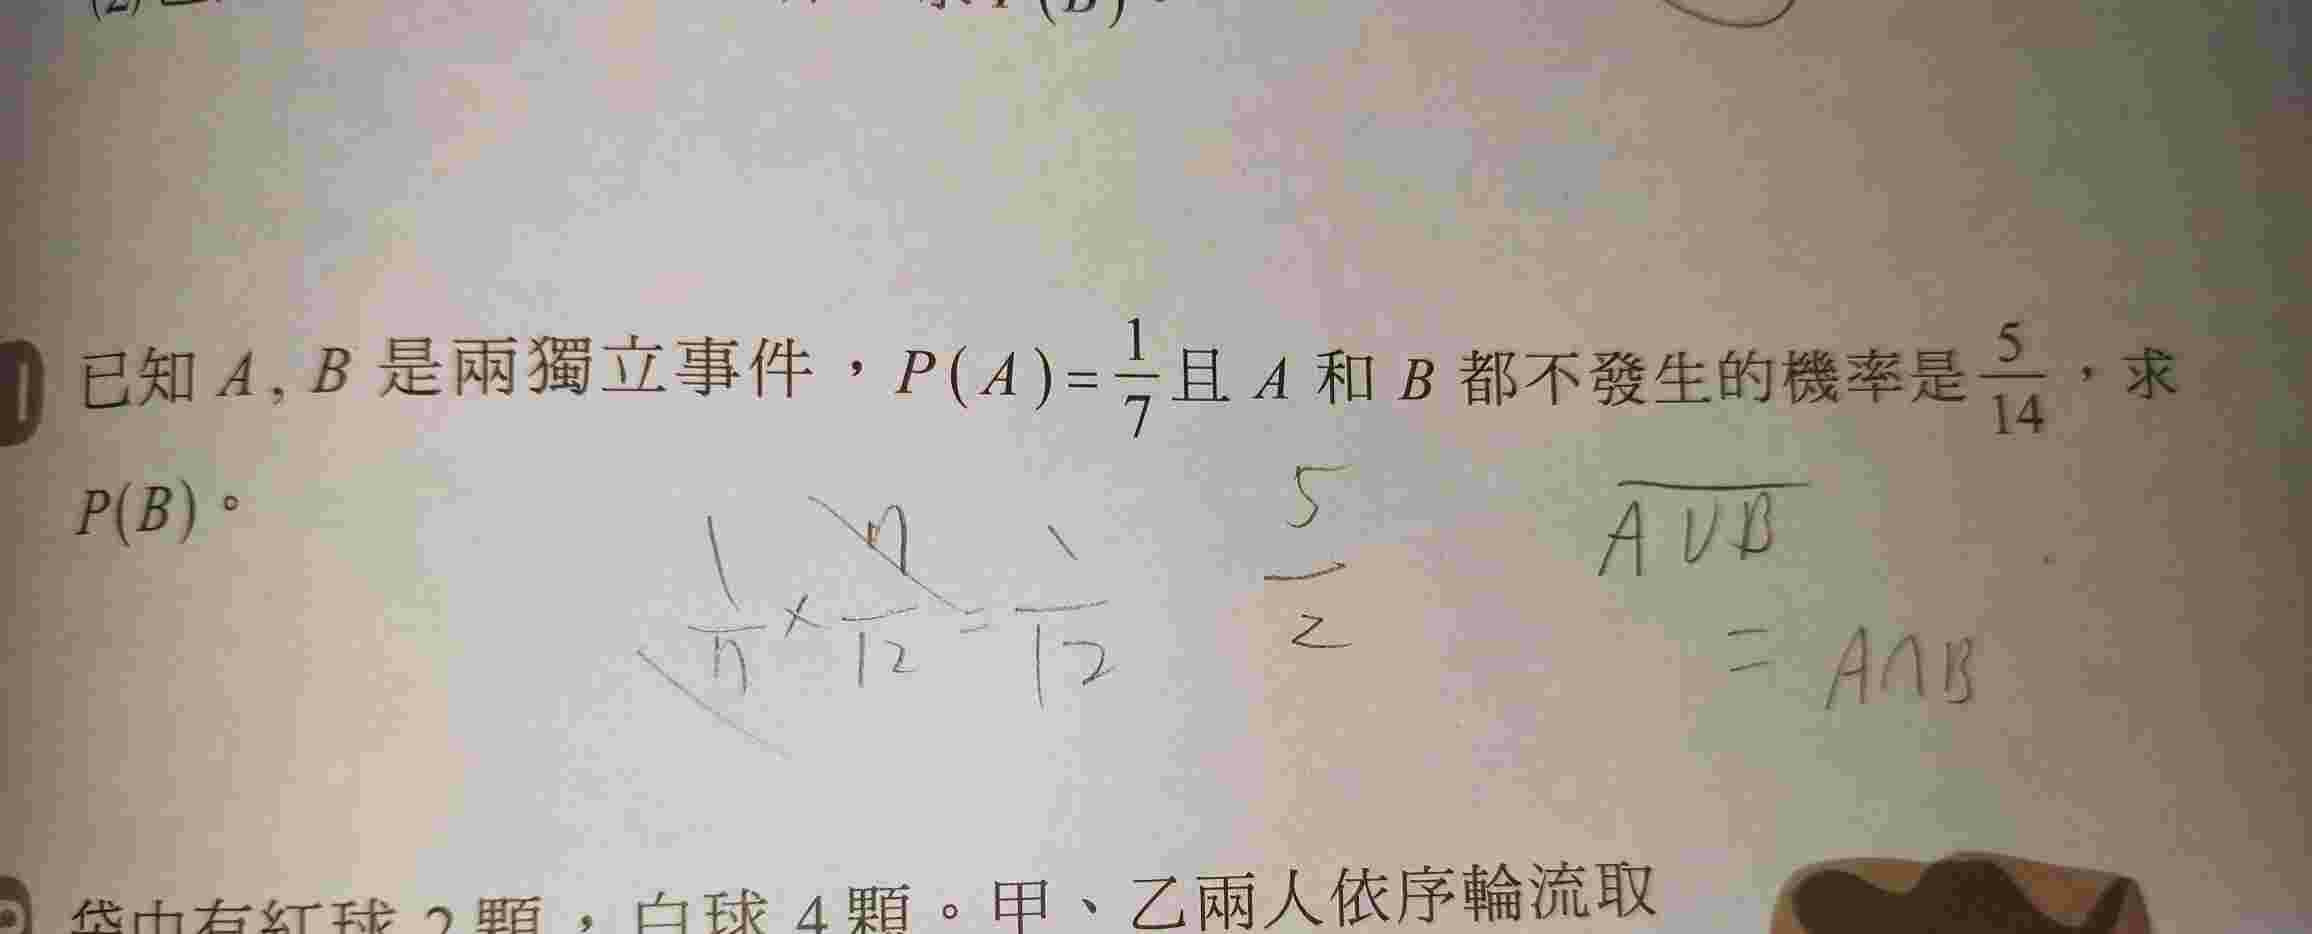 求P(B)。
已知 A, B 是兩獨立事件，P(A)=1/7 且 A 和 B 都不發生的機率是 5/14，求
P(B)。
5/2
A∪B
= A∩B
袋中有紅球 2 顆，白球 4 顆。甲、乙兩人依序輪流取